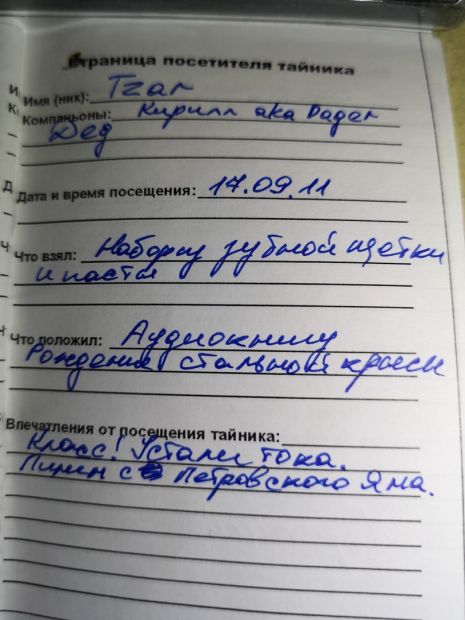 Страница посетителя тайника
Имя (ник): Tzar
Компаньоны: Кирилл aka Dager
Дед
Дата и время посещения: 17.09.11
Что взял: Наборчу зубной щетки
и пасты
Что положил: Аудиокнигу
Рождение стальной крысы
Впечатления от посещения тайника:
Класс! Устали тока.
с Петровского Яма.